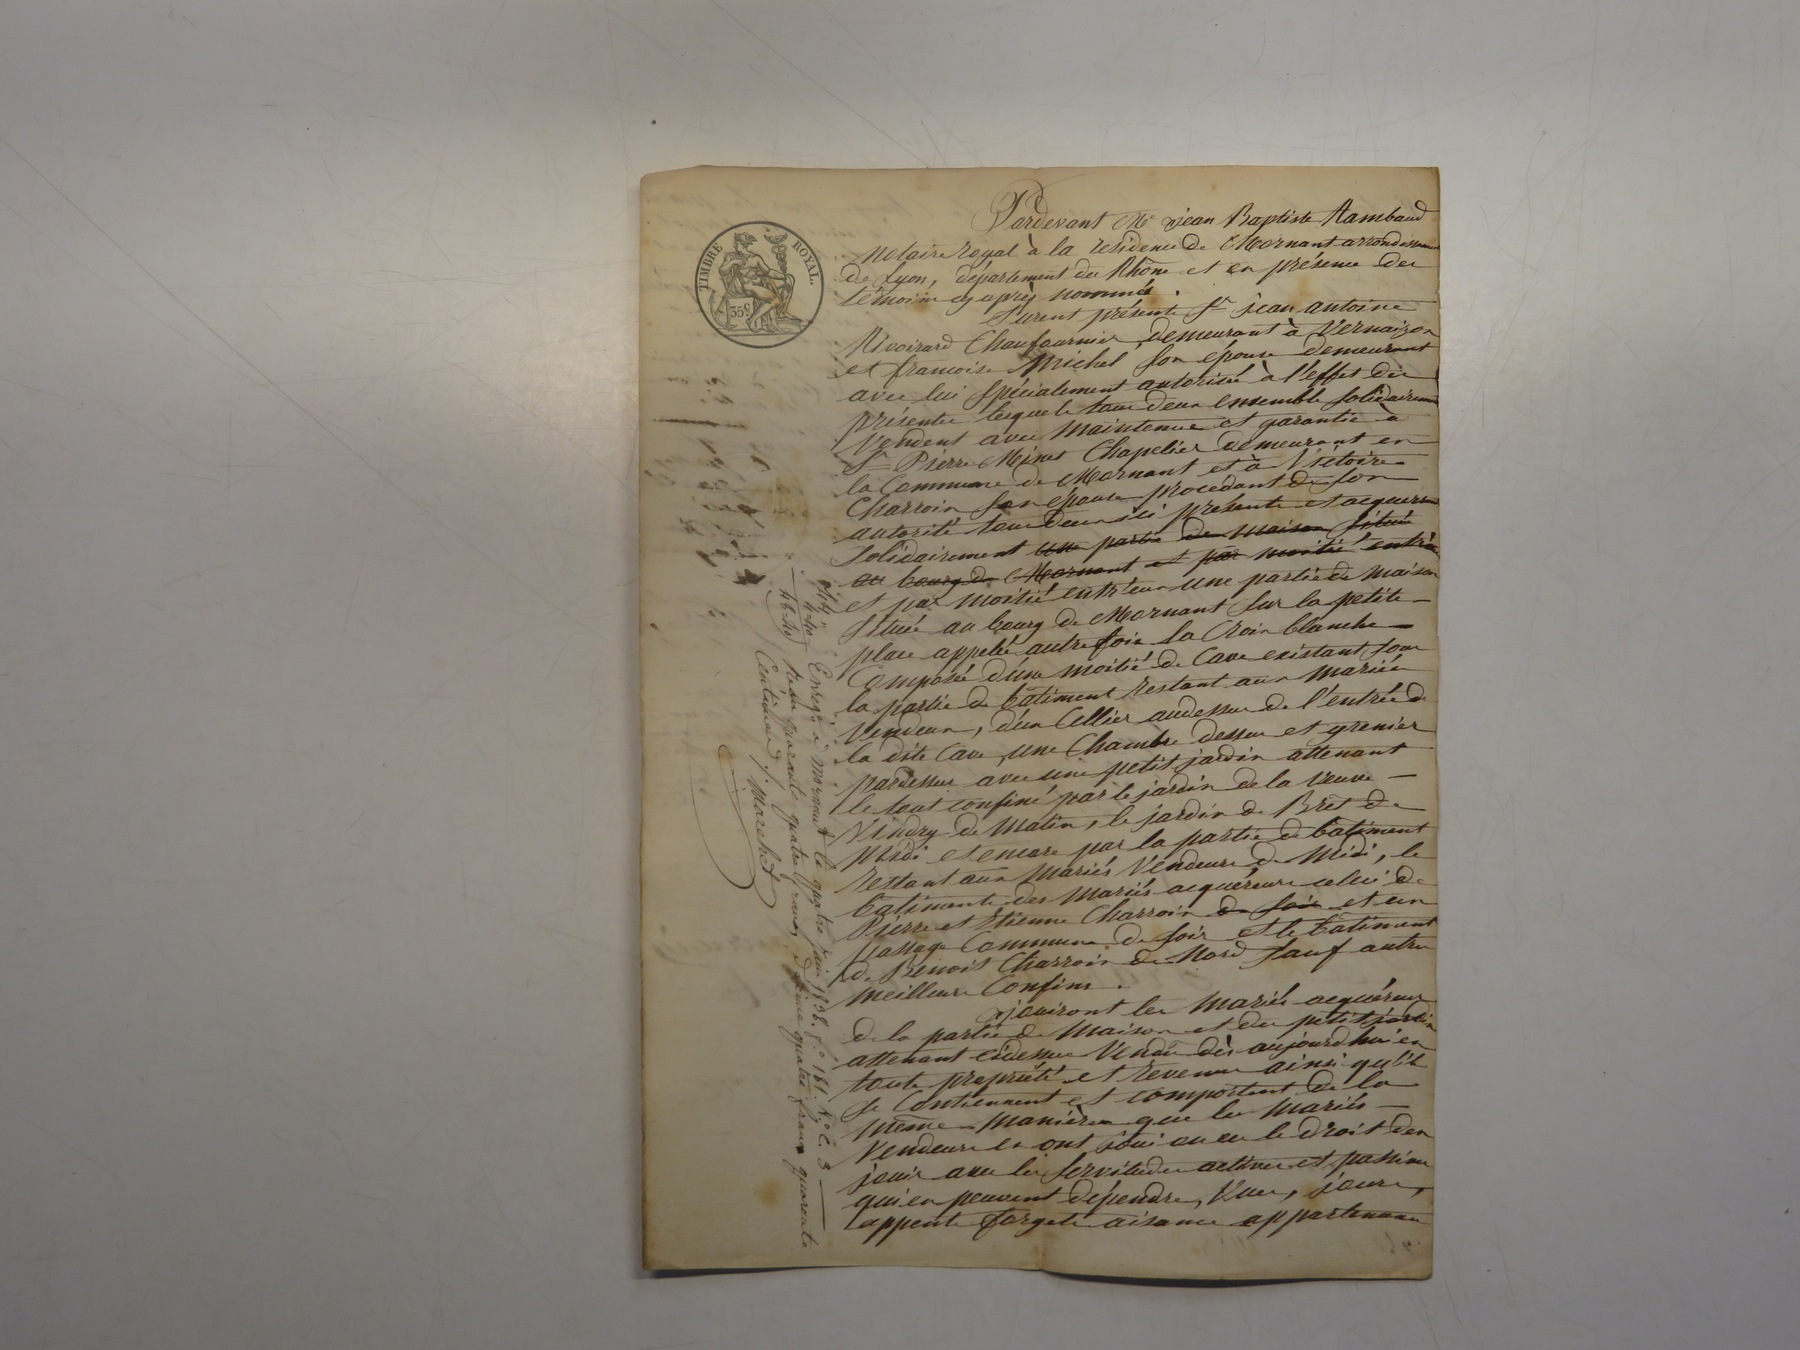 TIMBRE ROYAL.
35 c
Pardevant Me jean Baptiste Rambaud
Notaire Royal à la résidence de Mornant arrondissement
de Lyon, département du Rhône et en présence des
témoins cy après nommés.
Furent présents Sr jean antoine
Rivoirard Chaufournier demeurant à Vernaison
et francoise Michel son epouse demeurant
avec lui spécialement autorisée à l'effet des
présentes lesquels tous deux ensemble solidairement
Vendent avec maintenue et garantie à
Sr Pierre Mines Chapelier demeurant en
la Commune de Mornant et à Victoire
Charroin son Epouse procédant de son
autorité tous deux ici présents et acquerans
Solidairement une partie de maison située
au bourg de Mornant et par moitié entr'eux
et par moitié entr'eux une partie de maison
située au bourg de Mornant sur la petite
place appelée autrefois la Croix blanche
Composée d'une moitié de Cave existant sous
la partie de bâtiment restant aux mariés
Vendeurs, d'un Cellier audessus de l'entrée de
la dite Cave, une Chambre dessus et grenier
pardessus avec un petit jardin attenant
le tout confiné par le jardin de la veuve
Vindry de matin, le jardin de Bret de
Midi et encore par la partie de bâtiment
restant aux mariés Vendeurs de Midi, le
bâtiment des mariés acquéreurs celui de
Pierre et Etienne Charroin de soir et un
passage Commun de soir et le bâtiment
de Benoit Charroin de Nord sauf autres
meilleurs Confins.
jouiront les mariés acquéreurs
de la partie de Maison et du petit jardin
attenant cidessus Vendu dès aujourd'hui en
toute propriété et revenus ainsi qu'ils
se Contiennent et comportent de la
même manière que les mariés
Vendeurs en ont joui ou eu le droit d'en
jouir avec les servitudes actives et passives
qui en peuvent dépendre, Vues, jours,
appents forgets aisances appartenances
Enregé à Mornant le quatre juin 1838. fo 181. Ro Ce 3
Reçu quarante quatre francs, dixième quatre francs quarante
Centimes. Marchet